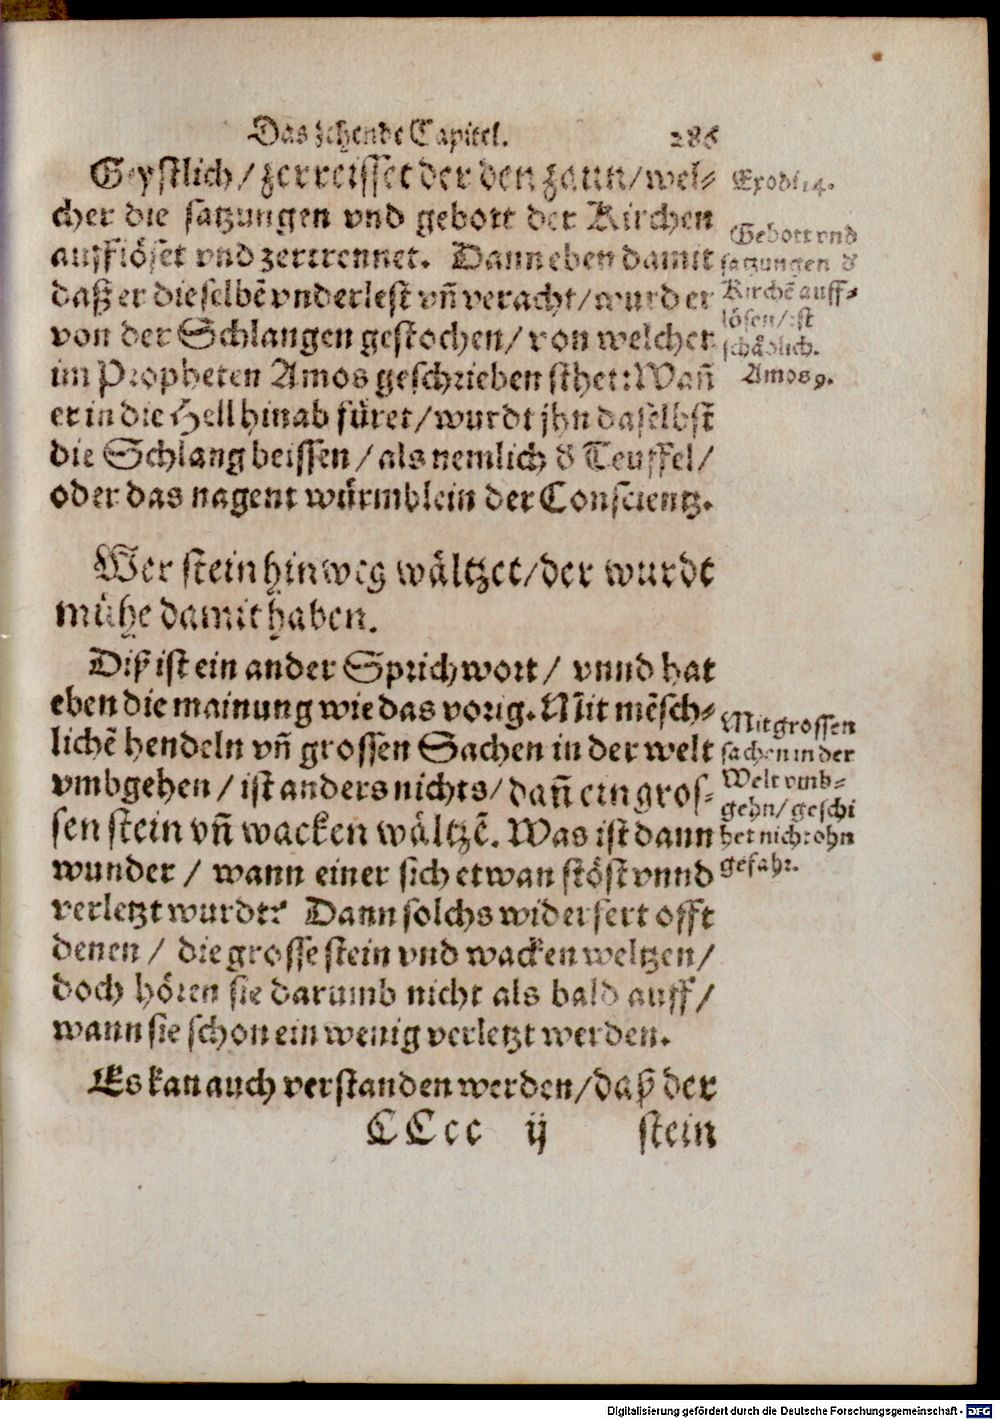 Das zehende Capitel. 286
Geystlich / zerreisset der den zaun / wel-
cher die satzungen vnd gebott der Kirchen
aufflöset vnd zertrennet. Dann eben damit
daß er dieselbē vnderlest vñ veracht / wurd er
von der Schlangen gestochen / von welcher
im Propheten Amos geschrieben sthet: Wañ
er in die Hell hinab füret / wurdt jhn daselbst
die Schlang beissen / als nemlich d̕ Teuffel /
oder das nagent würmblein der Conscientz.
Exodi 14.
Gebott vnd
satzungen d̕
Kirchē auff-
lösen / ist
schädlich.
Amos 9.
Wer stein hinweg wältzet / der wurdt
mühe damit haben.
Diß ist ein ander Sprichwort / vnnd hat
eben die mainung wie das vorig. Mit mēsch-
lichē hendeln vñ grossen Sachen in der welt
vmbgehen / ist anders nichts / dañ ein gros-
sen stein vñ wacken wältzē. Was ist dann
wunder / wann einer sich etwan stöst vnnd
verletzt wurdt? Dann solchs widerfert offt
denen / die grosse stein vnd wacken weltzen /
doch hören sie darumb nicht als bald auff /
wann sie schon ein wenig verletzt werden.
Mit grossen
sachen in der
Welt vmb-
gehn / geschi
het nicht ohn
gefahr.
Es kan auch verstanden werden / daß der
CCcc ij stein
Digitalisierung gefördert durch die Deutsche Forschungsgemeinschaft - DFG